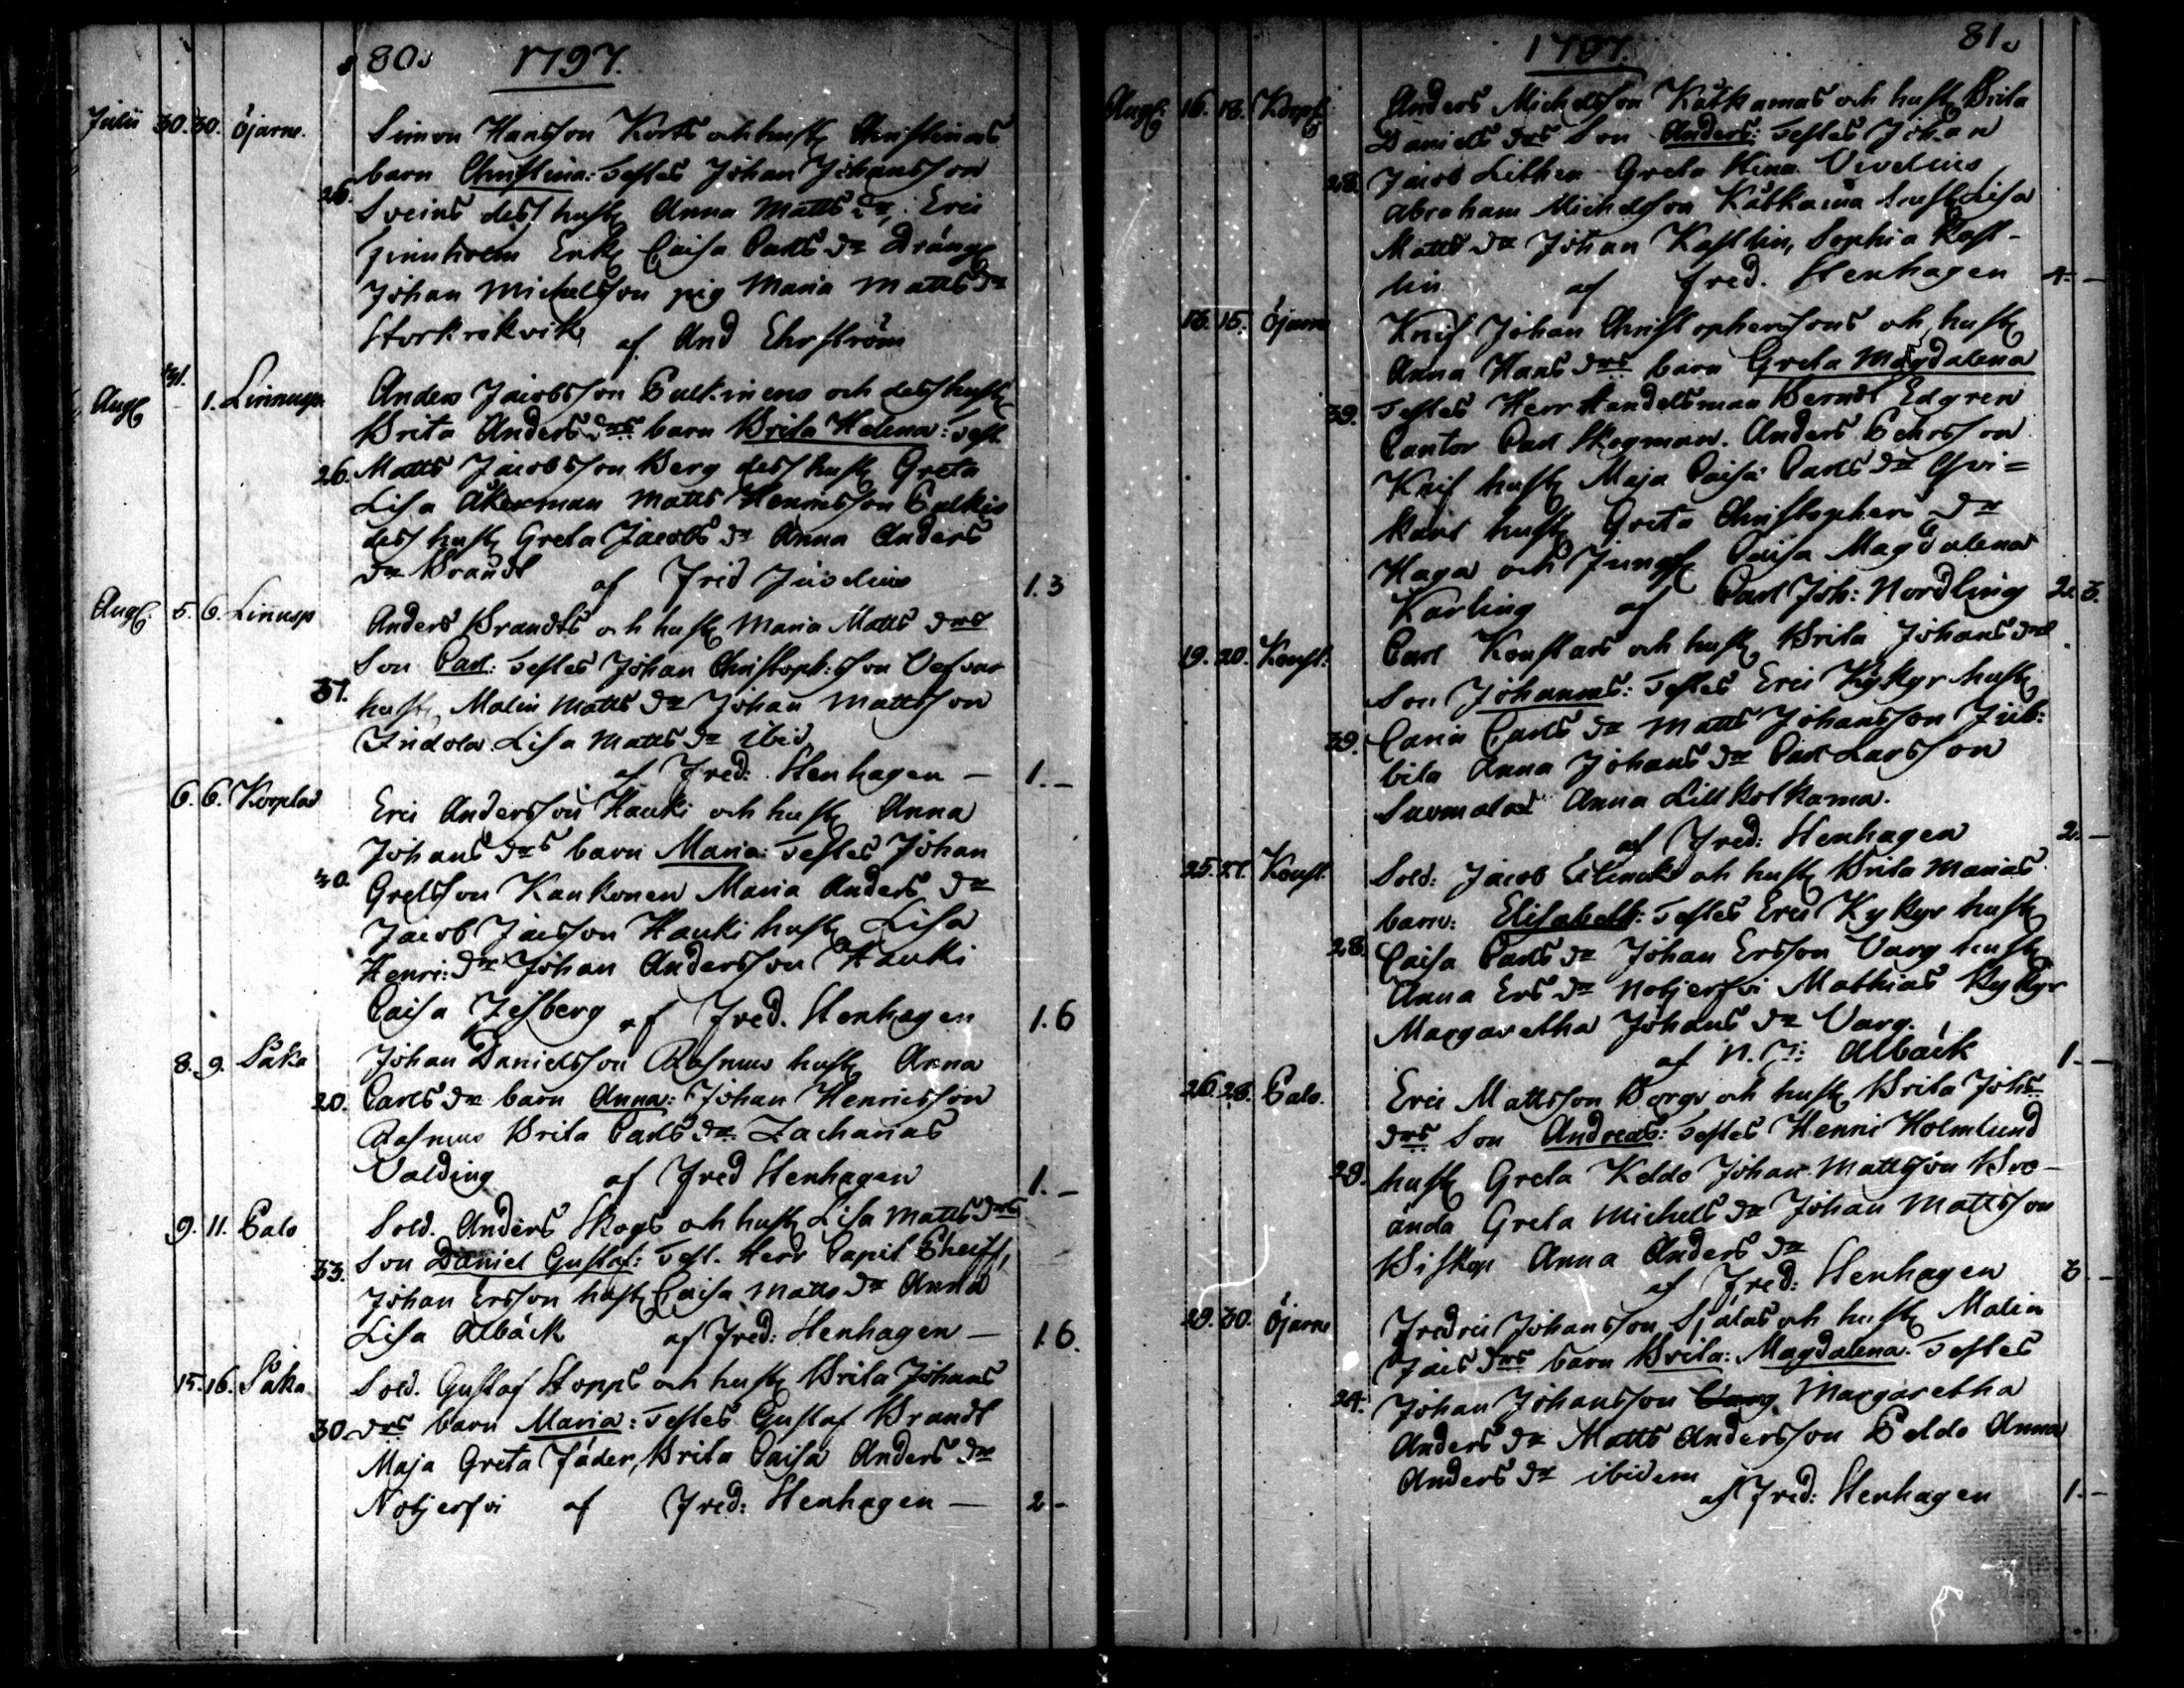 80. 1797.
Julii 30. 30. Öjarne. Simon Hansson Korts och hust Christinas
barn Christina: Testes Johan Johansson
26. Sveins dess hust Anna Matts dr, Eric
Enk Caisa Carls dr Dräng
Johan Michelsson pig Maria Matts dr
Storkrokvik af And Ehrström
Aug 31. 1. Linnusp Anders Jacobsson Pulkinens och dess hust
Brita Anders drs barn Brita Helena: Test
26. Matts Jacobsson Berg dess hust Greta
Lisa Åkerman Matts Henricsson Pulkis
dess hust Greta Jacobs dr Anna Anders
dr Brandt af Fred Juvelius 1. 3
Aug. 5. 6. Linusp Anders Brandts och hust Maria Matts drs
Son Carl: Testes Johan Christoph: son
37. hust Malin Matts dr Johan Mattsson
Indola. Lisa Matts dr ibid
af Fred: Stenhagen — 1. –
6. 6. Korplax Eric Andersson Hauki och hust Anna
Johans drs barn Maria: Testes Johan
40. Grelsson Kaukonen Maria Anders dr
Jacob Jacsson Hauki hust Lisa
Henri: dr Johan Andersson Hauki
Caisa Zisberg af Fred. Stenhagen 1. 6
8. 9. Såka Johan Danielsson Rasmus hust Anna
20. Carls dr barn Anna: Johan Henricsson
Rasmus Brita Carls dr Zacharias
Valding af Fred Stenhagen 1. –
9. 11. Palo Sold. Anders Skogs och hust Lisa Matts drs
33. Son Daniel Gustaf: Test. Herr Capit
Johan Ersson hust Caisa Matts dr Anna
Lisa Albäck af Fred: Stenhagen — 1. 6.
15. 16. Såka Sold. Gustaf Stopps och hust Brita Johans
30. drs barn Maria: Testes Gustaf Brandt
Maja Greta Fäder, Brita Caisa Anders dr
Notjerfvi af Fred: Stenhagen — 2 –
1797. 81.
Aug: 16. 18. Korpl Anders Michelsson Kåtkamas och hust Brita
Daniels drs Son Anders: Testes Johan
28. Jacob Lithen Greta Stina
Abraham Michelsson Kåtkama hust Lisa
Matts dr Johan Kastlin, Sophia Kast-
lin af Fred. Stenhagen 4. –
16. 15. Öjarne Knif Johan Christophersons och hust
Anna Hans drs barn Greta Magdalena
39. Testes Herr Handelsman Berndt Edgren
Cantor Carl Skogman. Anders Pehrsson
Knif hust Maja Caisa Carls dr Qvi=
kant hust Greta Christophers dr
Haga och Jungf Caisa Magdalena
Karling af Carl Joh: Nordling 2. 3.
19. 20. Konst. Carl Konstars och hust Brita Johans drs
Son Johannes: Testes Eric Kykyr hust
39. Carin Carls dr Matts Johansson Jub:
bila Anna Johans dr Carl Larsson
Suomalax Anna Lillkotkama.
af Fred: Stenhagen 2. –
25. 27. Konst. Sold: Jacob och hust Brita Marias
barn: Elisabeth: Testes Eric Kykyr hust
28. Caisa Carls dr Johan Ersson Varg hust
Anna Ers dr Notjerfvi Mathias Kykyr
Margaretha Johans dr Varg.
af N. J: Albäck 1. –
26. 28. Palo. Eric Mattsson Borgs och hust Brita Johs
drs Son Andreas: Testes Henric Holmlund
29. hust Greta Keldo Johan Mattsson Bro-
ända Greta Michels dr Johan Mattsson
Biskop Anna Anders dr
af Fred: Stenhagen 3. –
29. 30. Öjarne Fredric Johansson Sjalas och hust Malin
Jacs drs barn Brita: Magdalena. Testes
24. Johan Johansson Varg Margaretha
Anders dr Matts Andersson Peldo Anna
Anders dr ibidem
af Fred: Stenhagen 1. –